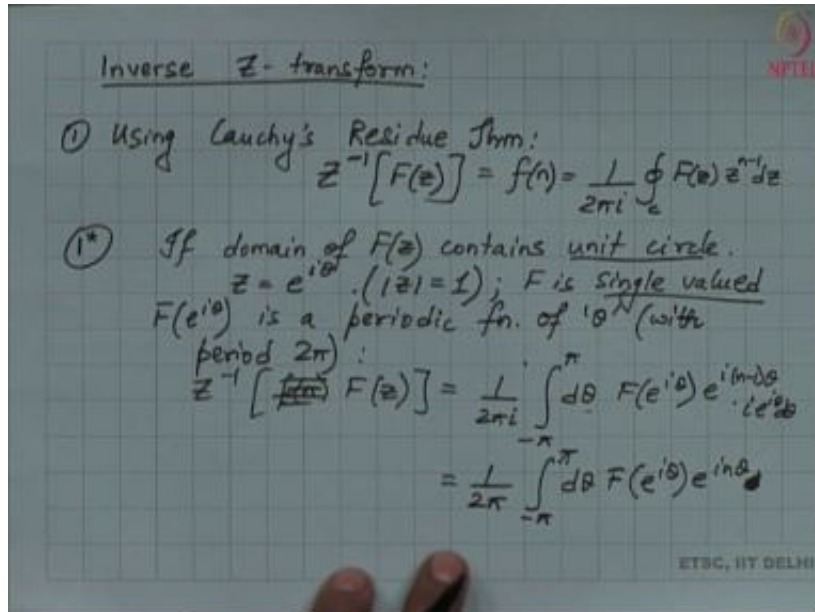 Inverse Z-transform:
NPTEL
① Using Cauchy's Residue Thm:
Z⁻¹[F(z)] = f(n) = 1/2πi ∮_c F(z) zⁿ⁻¹dz
①* If domain of F(z) contains unit circle.
z = e^{iθ}. (|z| = 1); F is single valued
F(e^{iθ}) is a periodic fn. of 'θ' (with
period 2π) :
Z⁻¹[F(z)] = 1/2πi ∫_{-π}^{π} dθ F(e^{iθ}) e^{i(n-1)θ} · ie^{iθ}dθ
= 1/2π ∫_{-π}^{π} dθ F(e^{iθ}) e^{inθ}
ETSC, IIT DELHI